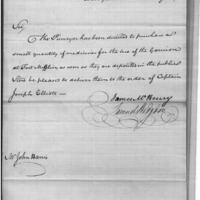 Sir,
The Purveyor has been directed to purchase a
small quantity of medicines for the use of the Garrison
at Fort Mifflin, as soon as they are deposited in the public
Store be pleased to deliver them to the order of Captain
Joseph Elliott
James McHenry
Mr John Harris